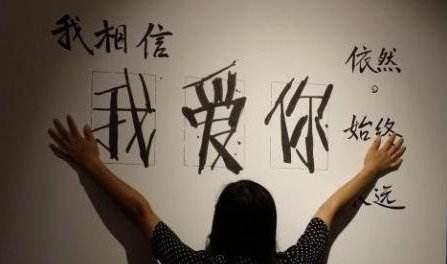 我相信
我爱你
依然。
始终
远